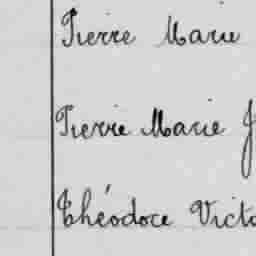 Pierre Marie
Pierre Marie J
Théodore Victo